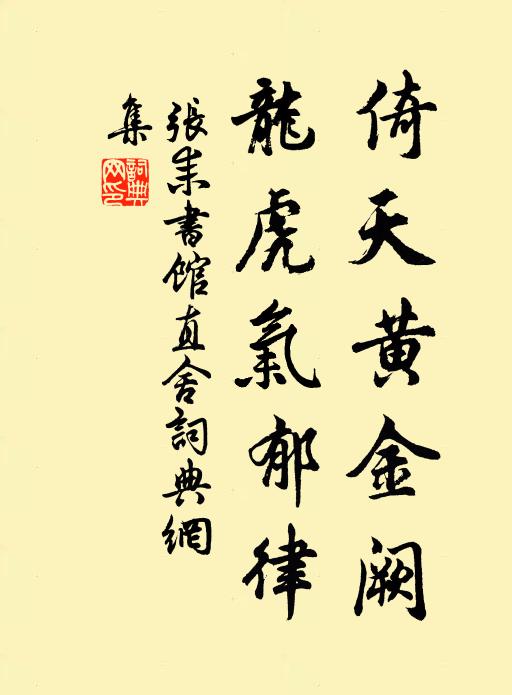 倚天黄金阙
龍虎氣郁律
張耒書館直舍詞典網
集
詞典網印